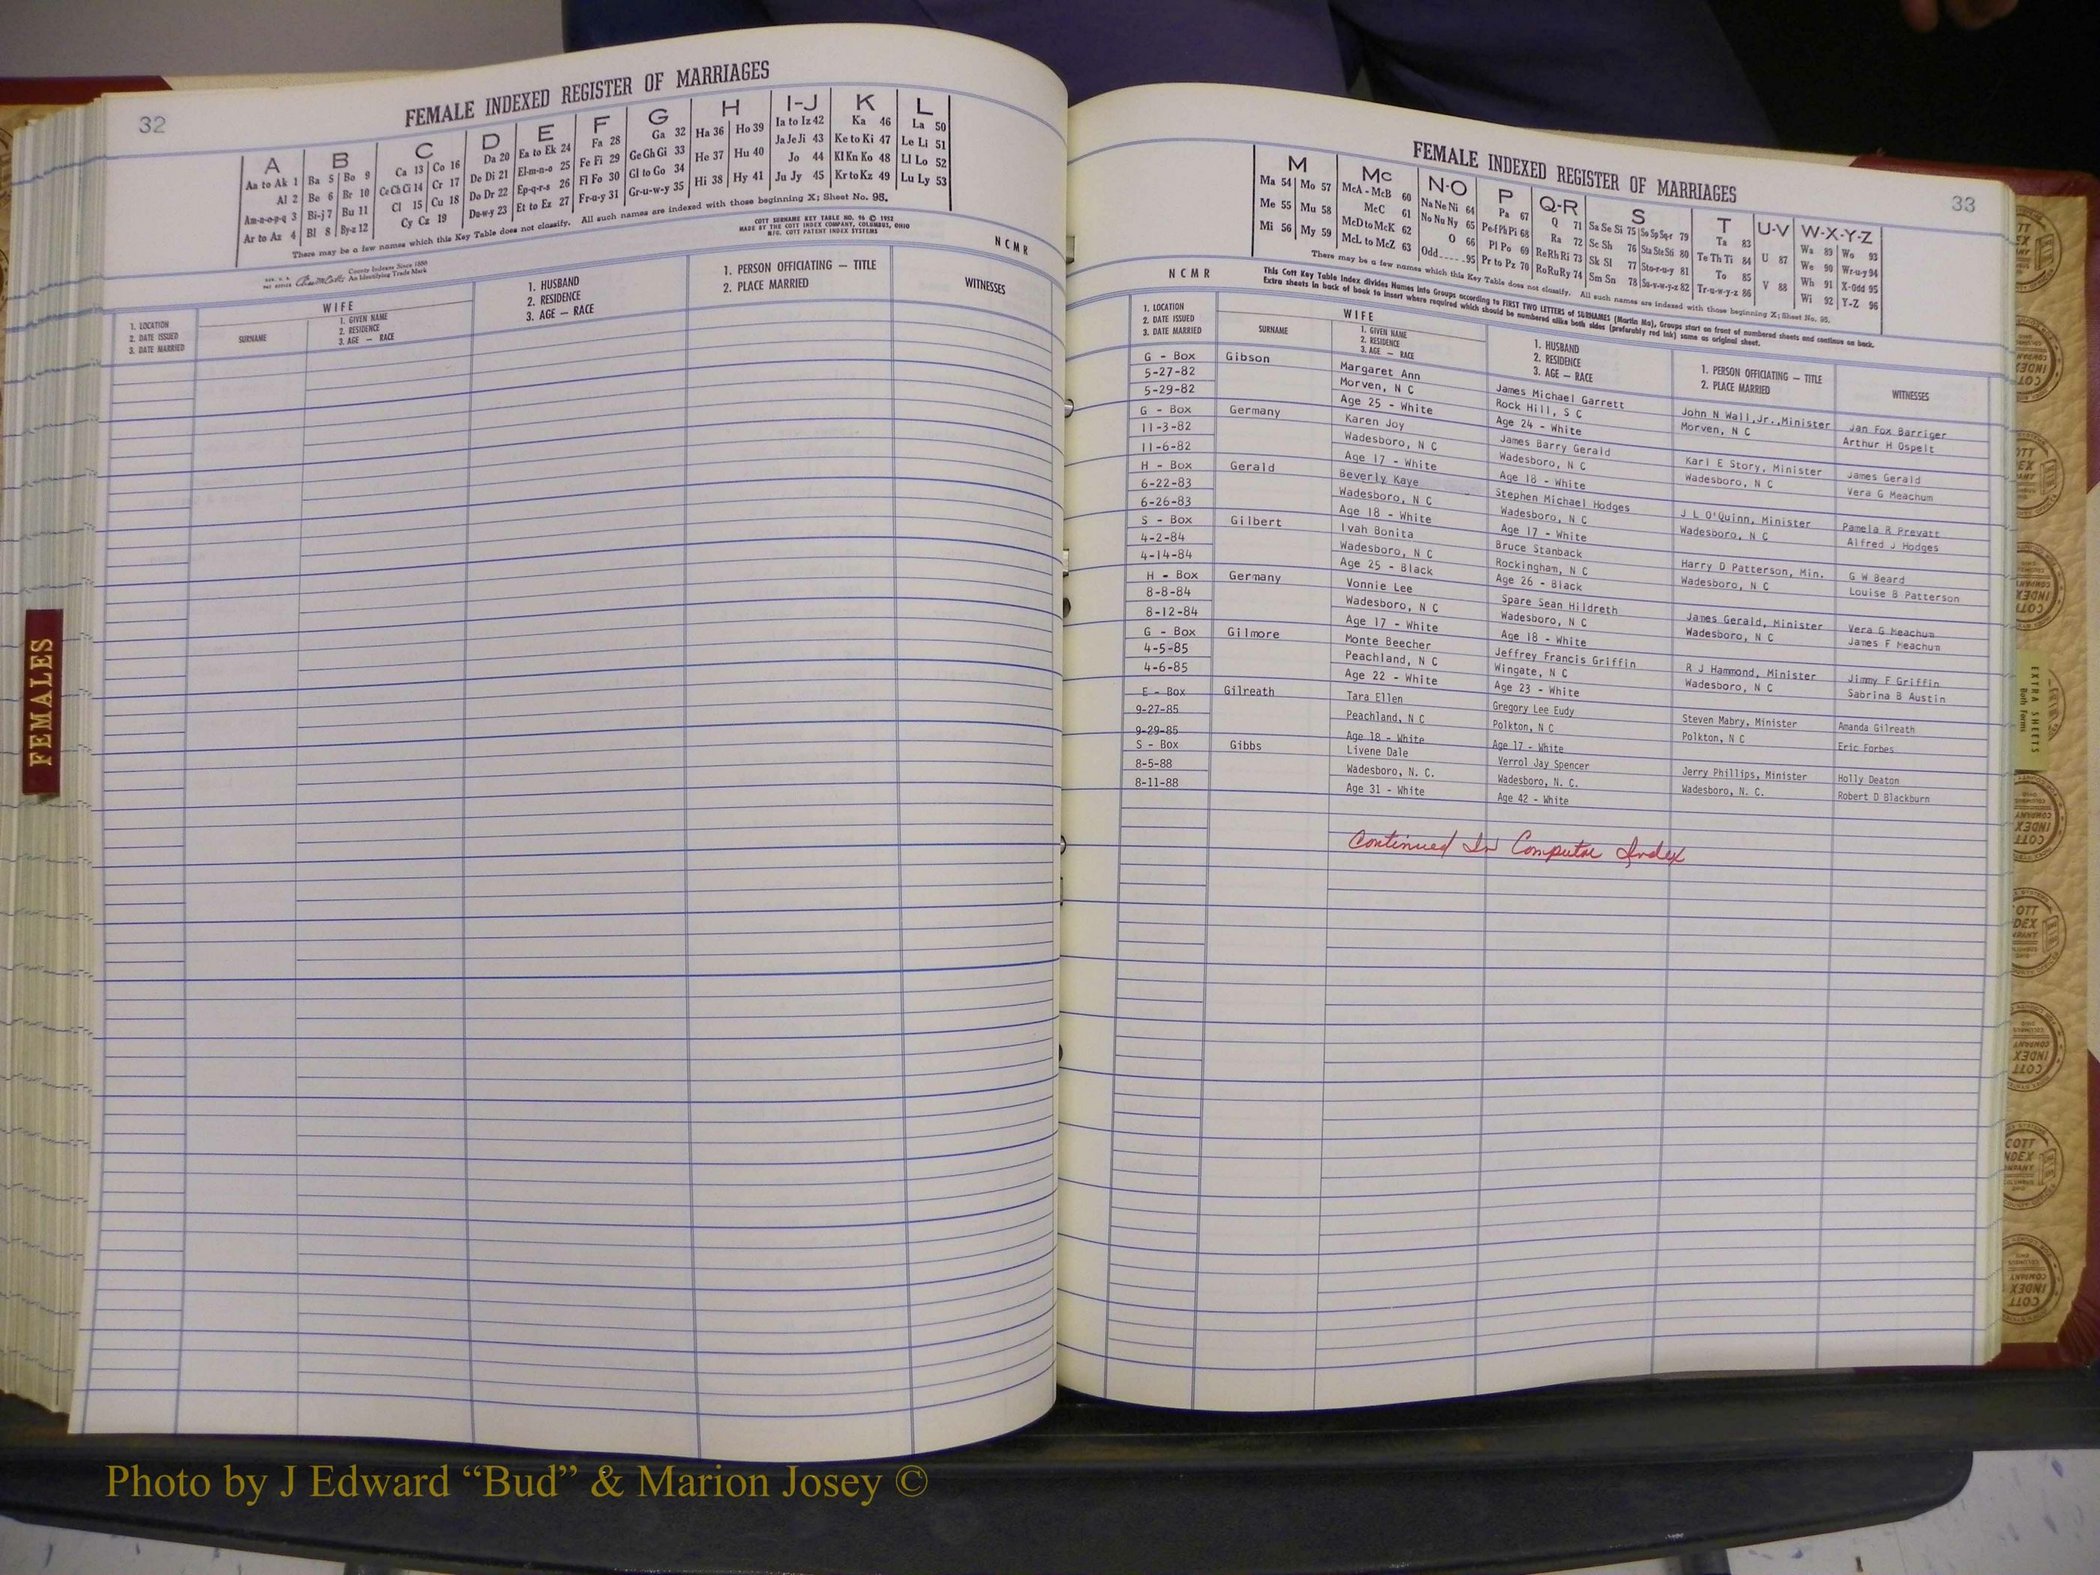 32
FEMALE INDEXED REGISTER OF MARRIAGES
A B C D E F G H I-J K L
Aa to Ak 1 Ba 5 Bo 9 Ca 13 Co 16 Da 20 Ea to Ek 24 Fa 28 Ga 32 Ha 36 Ho 39 Ia to Iz 42 Ka 46 La 50
Al 2 Be 6 Br 10 Ce Ch Ci 14 Cr 17 De Di 21 El-m-n-o 25 Fe Fi 29 Ge Gh Gi 33 He 37 Hu 40 Ja Je Ji 43 Ke to Ki 47 Le Li 51
Am-n-o-p-q 3 Bi-j 7 Bu 11 Cl 15 Cu 18 Do Dr 22 Ep-q-r-s 26 Fl Fo 30 Gl to Go 34 Hi 38 Hy 41 Jo 44 Kl Kn Ko 48 Ll Lo 52
Ar to Az 4 Bl 8 By-z 12 Cy Cz 19 Du-w-y 23 Et to Ez 27 Fr-u-y 31 Gr-u-w-y 35 Ju Jy 45 Kr to Kz 49 Lu Ly 53
There may be a few names which this Key Table does not classify. All such names are indexed with those beginning X; Sheet No. 95.
COTT SURNAME KEY TABLE NO. 96 © 1952
MADE BY THE COTT INDEX COMPANY, COLUMBUS, OHIO
MFG. COTT PATENT INDEX SYSTEMS
NCMR
County Indexes Since 1888
An Identifying Trade Mark
1. LOCATION
2. DATE ISSUED
3. DATE MARRIED
WIFE
SURNAME
1. GIVEN NAME
2. RESIDENCE
3. AGE — RACE
1. HUSBAND
2. RESIDENCE
3. AGE — RACE
1. PERSON OFFICIATING — TITLE
2. PLACE MARRIED
WITNESSES
FEMALES
FEMALE INDEXED REGISTER OF MARRIAGES
33
M Mc N-O P Q-R S T U-V W-X-Y-Z
Ma 54 Mo 57 McA - McB 60 Na Ne Ni 64 Pa 67 Q 71 Sa Se Si 75 So Sp Sq-r 79 Ta 83 U 87 Wa 89 Wo 93
Me 55 Mu 58 McC 61 No Nu Ny 65 Pe-f Ph Pi 68 Ra 72 Sc Sh 76 Sta Ste Sti 80 Te Th Ti 84 V 88 We 90 Wr-u-y 94
Mi 56 My 59 McD to McK 62 O 66 Pl Po 69 Re Rh Ri 73 Sk Sl 77 Sto-r-u-y 81 To 85 Wh 91 X-odd 95
McL to McZ 63 Odd 95 Pr to Pz 70 Ro Ru Ry 74 Sm Sn 78 Su-v-w-y-z 82 Tr-u-w-y-z 86 Wi 92 Y-Z 96
There may be a few names which this Key Table does not classify. All such names are indexed with those beginning X; Sheet No. 95.
NCMR
This Cott Key Table Index divides Names into Groups according to FIRST TWO LETTERS of SURNAMES (Martin Ma), Groups start on front of numbered sheets and continue on back.
Extra sheets in back of book to insert where required which should be numbered alike both sides (preferably red ink) same as original sheet.
1. LOCATION
2. DATE ISSUED
3. DATE MARRIED
WIFE
SURNAME
1. GIVEN NAME
2. RESIDENCE
3. AGE — RACE
1. HUSBAND
2. RESIDENCE
3. AGE — RACE
1. PERSON OFFICIATING — TITLE
2. PLACE MARRIED
WITNESSES
G - Box Gibson Margaret Ann James Michael Garrett John N Wall,Jr.,Minister Jan Fox Barriger
5-27-82 Morven, N C Rock Hill, S C Morven, N C Arthur H Ospelt
5-29-82 Age 25 - White Age 24 - White
G - Box Germany Karen Joy James Barry Gerald Karl E Story, Minister James Gerald
11-3-82 Wadesboro, N C Wadesboro, N C Wadesboro, N C Vera G Meachum
11-6-82 Age 17 - White Age 18 - White
H - Box Gerald Beverly Kaye Stephen Michael Hodges J L O'Quinn, Minister Pamela R Prevatt
6-22-83 Wadesboro, N C Wadesboro, N C Wadesboro, N C Alfred J Hodges
6-26-83 Age 18 - White Age 17 - White
S - Box Gilbert Ivah Bonita Bruce Stanback Harry D Patterson, Min. G W Beard
4-2-84 Wadesboro, N C Rockingham, N C Wadesboro, N C Louise B Patterson
4-14-84 Age 25 - Black Age 26 - Black
H - Box Germany Vonnie Lee Spare Sean Hildreth James Gerald, Minister Vera G Meachum
8-8-84 Wadesboro, N C Wadesboro, N C Wadesboro, N C James F Meachum
8-12-84 Age 17 - White Age 18 - White
G - Box Gilmore Monte Beecher Jeffrey Francis Griffin R J Hammond, Minister Jimmy F Griffin
4-5-85 Peachland, N C Wingate, N C Wadesboro, N C Sabrina B Austin
4-6-85 Age 22 - White Age 23 - White
E - Box Gilreath Tara Ellen Gregory Lee Eudy Steven Mabry, Minister Amanda Gilreath
9-27-85 Peachland, N C Polkton, N C Polkton, N C Eric Forbes
9-29-85 Age 18 - White Age 17 - White
S - Box Gibbs Livene Dale Verrol Jay Spencer Jerry Phillips, Minister Holly Deaton
8-5-88 Wadesboro, N. C. Wadesboro, N. C. Wadesboro, N. C. Robert D Blackburn
8-11-88 Age 31 - White Age 42 - White
Continued In Computer Index
EXTRA SHEETS
Both Forms
Photo by J Edward “Bud” & Marion Josey ©